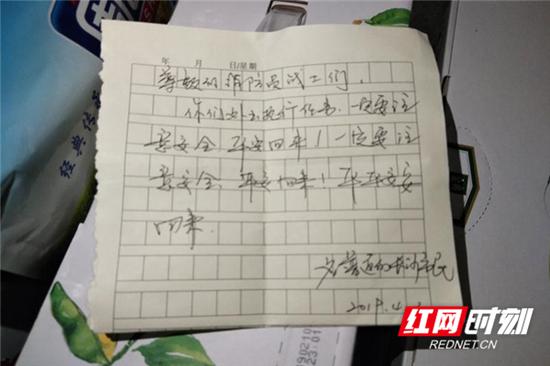 年 月 日/星期
尊敬的消防员战士们,
你们外出执行任务,一定要注
意安全,平安回来!一定要注
意安全,平安回来!平平安安
回来.
长沙市民
2019.4.
经典传
190210
23:01
红网时刻
REDNET.CN